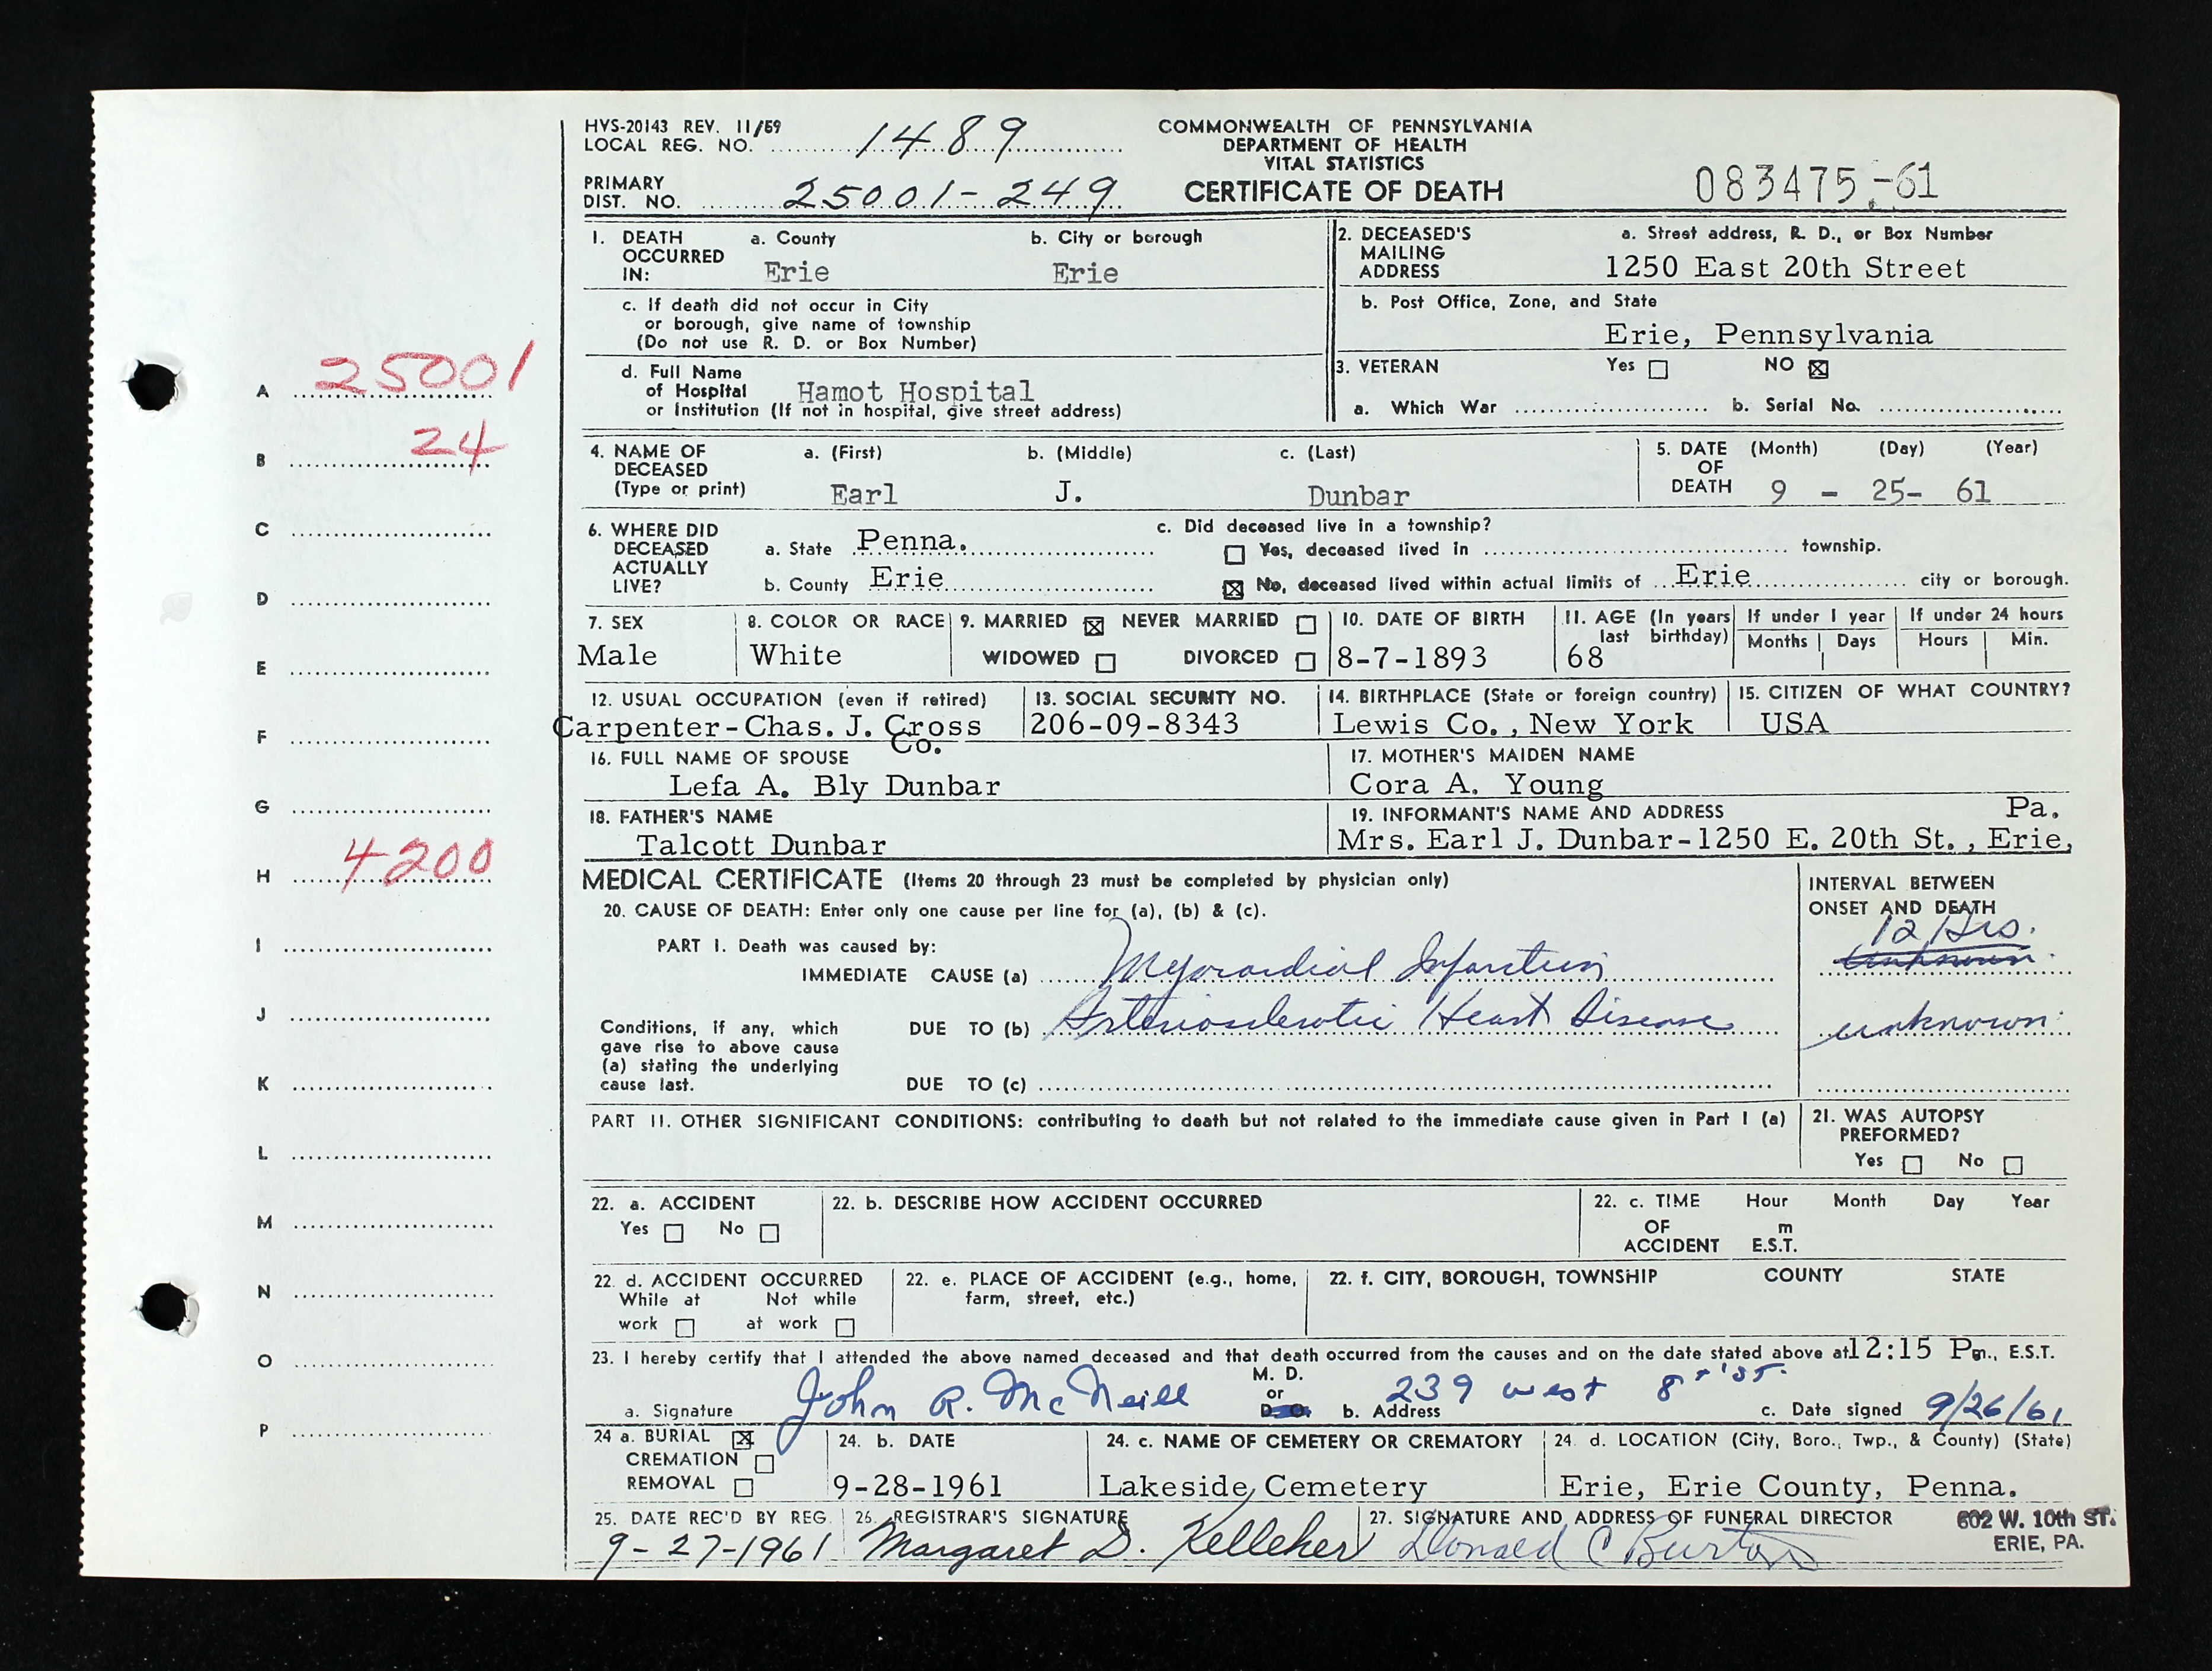 HVS-20143 REV. 11/59
LOCAL REG. NO. 1489
COMMONWEALTH OF PENNSYLVANIA
DEPARTMENT OF HEALTH
VITAL STATISTICS
CERTIFICATE OF DEATH
PRIMARY
DIST. NO. 25001-249
083475-61
1. DEATH OCCURRED IN: a. County b. City or borough
Erie Erie
c. If death did not occur in City
or borough, give name of township
(Do not use R. D. or Box Number)
d. Full Name
of Hospital Hamot Hospital
or Institution (If not in hospital, give street address)
2. DECEASED'S MAILING ADDRESS a. Street address, R. D., or Box Number
1250 East 20th Street
b. Post Office, Zone, and State
Erie, Pennsylvania
3. VETERAN Yes NO ☒
a. Which War b. Serial No.
A 25001
B 24
C
D
E
F
G
H 4200
I
J
K
L
M
N
O
P
4. NAME OF DECEASED (Type or print) a. (First) b. (Middle) c. (Last)
Earl J. Dunbar
5. DATE OF DEATH (Month) (Day) (Year)
9 - 25- 61
6. WHERE DID DECEASED ACTUALLY LIVE?
a. State Penna.
b. County Erie
c. Did deceased live in a township?
☐ Yes, deceased lived in township.
☒ No, deceased lived within actual limits of Erie city or borough.
7. SEX
Male
8. COLOR OR RACE
White
9. MARRIED ☒ NEVER MARRIED ☐
WIDOWED ☐ DIVORCED ☐
10. DATE OF BIRTH
8-7-1893
11. AGE (In years last birthday)
68
If under 1 year If under 24 hours
Months Days Hours Min.
12. USUAL OCCUPATION (even if retired)
Carpenter-Chas. J. Cross
Co.
13. SOCIAL SECURITY NO.
206-09-8343
14. BIRTHPLACE (State or foreign country)
Lewis Co., New York
15. CITIZEN OF WHAT COUNTRY?
USA
16. FULL NAME OF SPOUSE
Lefa A. Bly Dunbar
17. MOTHER'S MAIDEN NAME
Cora A. Young
18. FATHER'S NAME
Talcott Dunbar
19. INFORMANT'S NAME AND ADDRESS Pa.
Mrs. Earl J. Dunbar-1250 E. 20th St., Erie,
MEDICAL CERTIFICATE (Items 20 through 23 must be completed by physician only)
INTERVAL BETWEEN
ONSET AND DEATH
20. CAUSE OF DEATH: Enter only one cause per line for (a), (b) & (c).
PART I. Death was caused by:
12 Hrs.
IMMEDIATE CAUSE (a) Myocardial Infarction unknown
Conditions, if any, which
gave rise to above cause
(a) stating the underlying
cause last.
DUE TO (b) Arteriosclerotic Heart Disease unknown
DUE TO (c)
PART II. OTHER SIGNIFICANT CONDITIONS: contributing to death but not related to the immediate cause given in Part I (a)
21. WAS AUTOPSY
PREFORMED?
Yes ☐ No ☐
22. a. ACCIDENT
Yes ☐ No ☐
22. b. DESCRIBE HOW ACCIDENT OCCURRED
22. c. TIME Hour Month Day Year
OF m
ACCIDENT E.S.T.
22. d. ACCIDENT OCCURRED
While at Not while
work ☐ at work ☐
22. e. PLACE OF ACCIDENT (e.g., home,
farm, street, etc.)
22. f. CITY, BOROUGH, TOWNSHIP COUNTY STATE
23. I hereby certify that I attended the above named deceased and that death occurred from the causes and on the date stated above at 12:15 Pm., E.S.T.
a. Signature John R. McNeill M. D. or D. O. b. Address 239 west 8th St. c. Date signed 9/26/61
24 a. BURIAL ☒
CREMATION ☐
REMOVAL ☐
24. b. DATE
9-28-1961
24. c. NAME OF CEMETERY OR CREMATORY
Lakeside Cemetery
24. d. LOCATION (City, Boro., Twp., & County) (State)
Erie, Erie County, Penna.
25. DATE REC'D BY REG.
9-27-1961
26. REGISTRAR'S SIGNATURE
Margaret D. Kelleher
27. SIGNATURE AND ADDRESS OF FUNERAL DIRECTOR
Donald C Burton
602 W. 10th ST.
ERIE, PA.